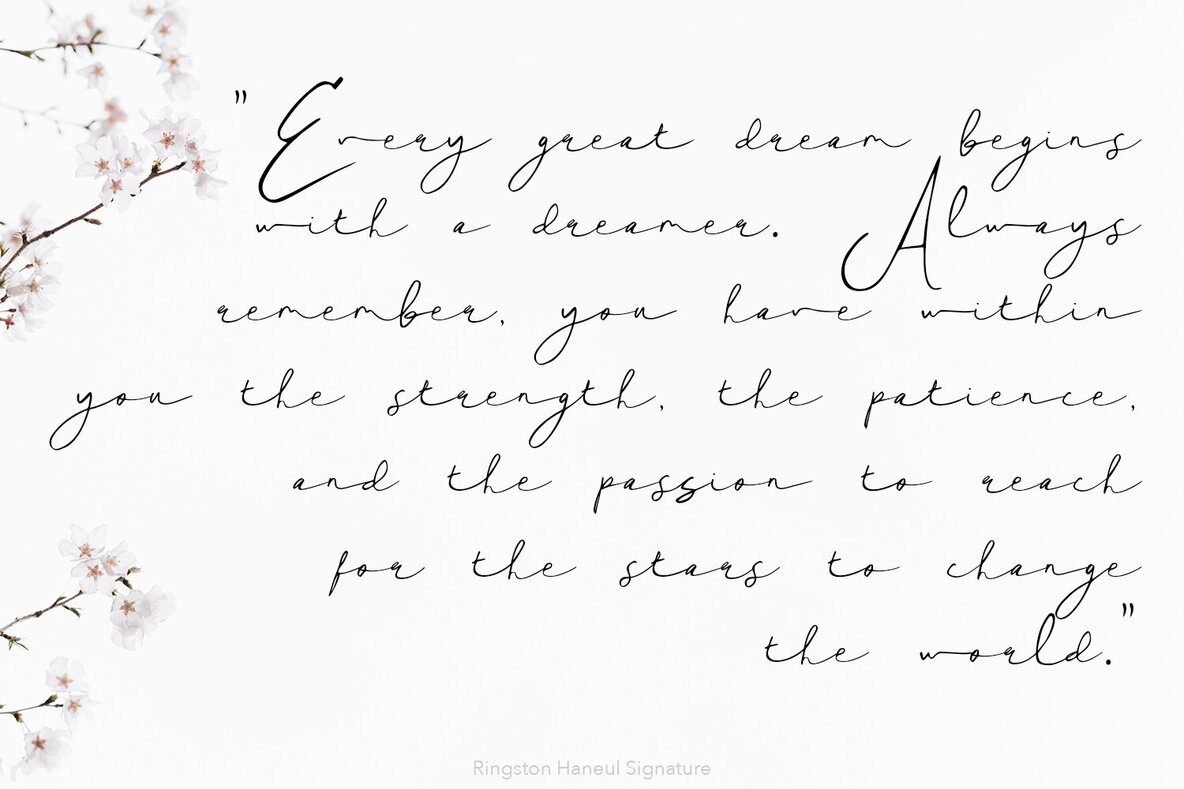 "Every great dream begins
with a dreamer. Always
remember, you have within
you the strength, the patience,
and the passion to reach
for the stars to change
the world."
Ringston Haneul Signature